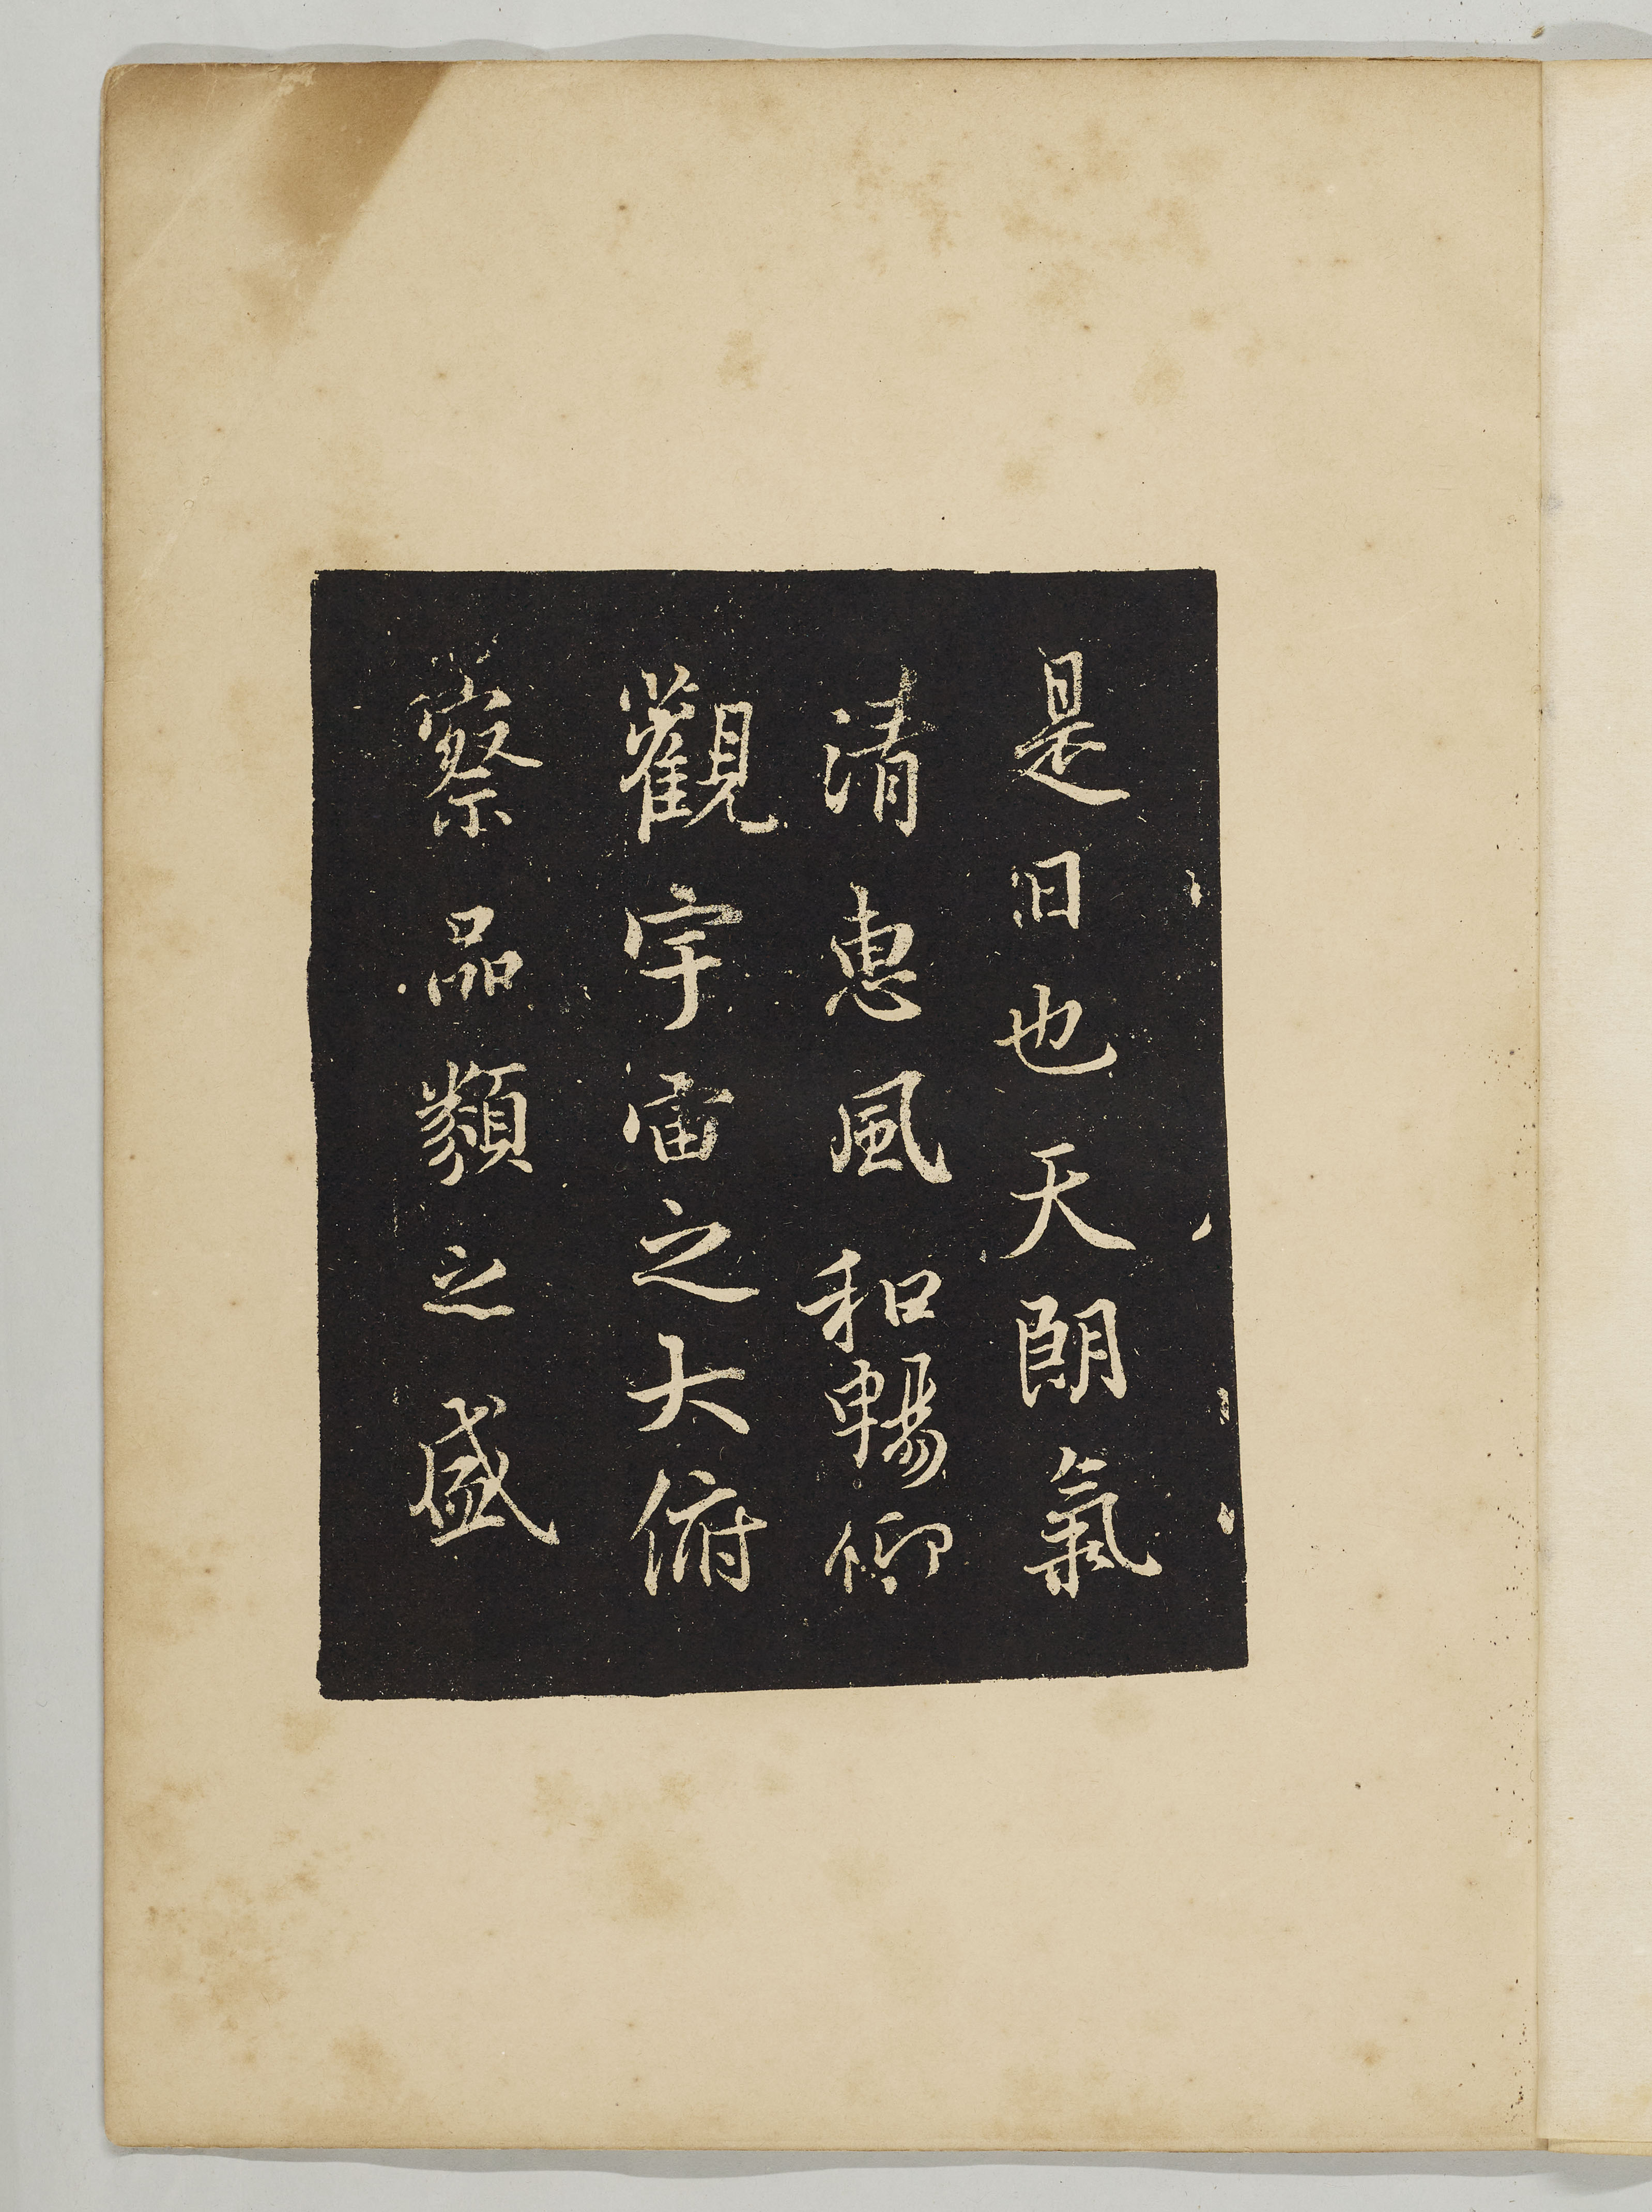 是日也天朗氣
清惠風和暢仰
觀宇宙之大俯
察品類之盛